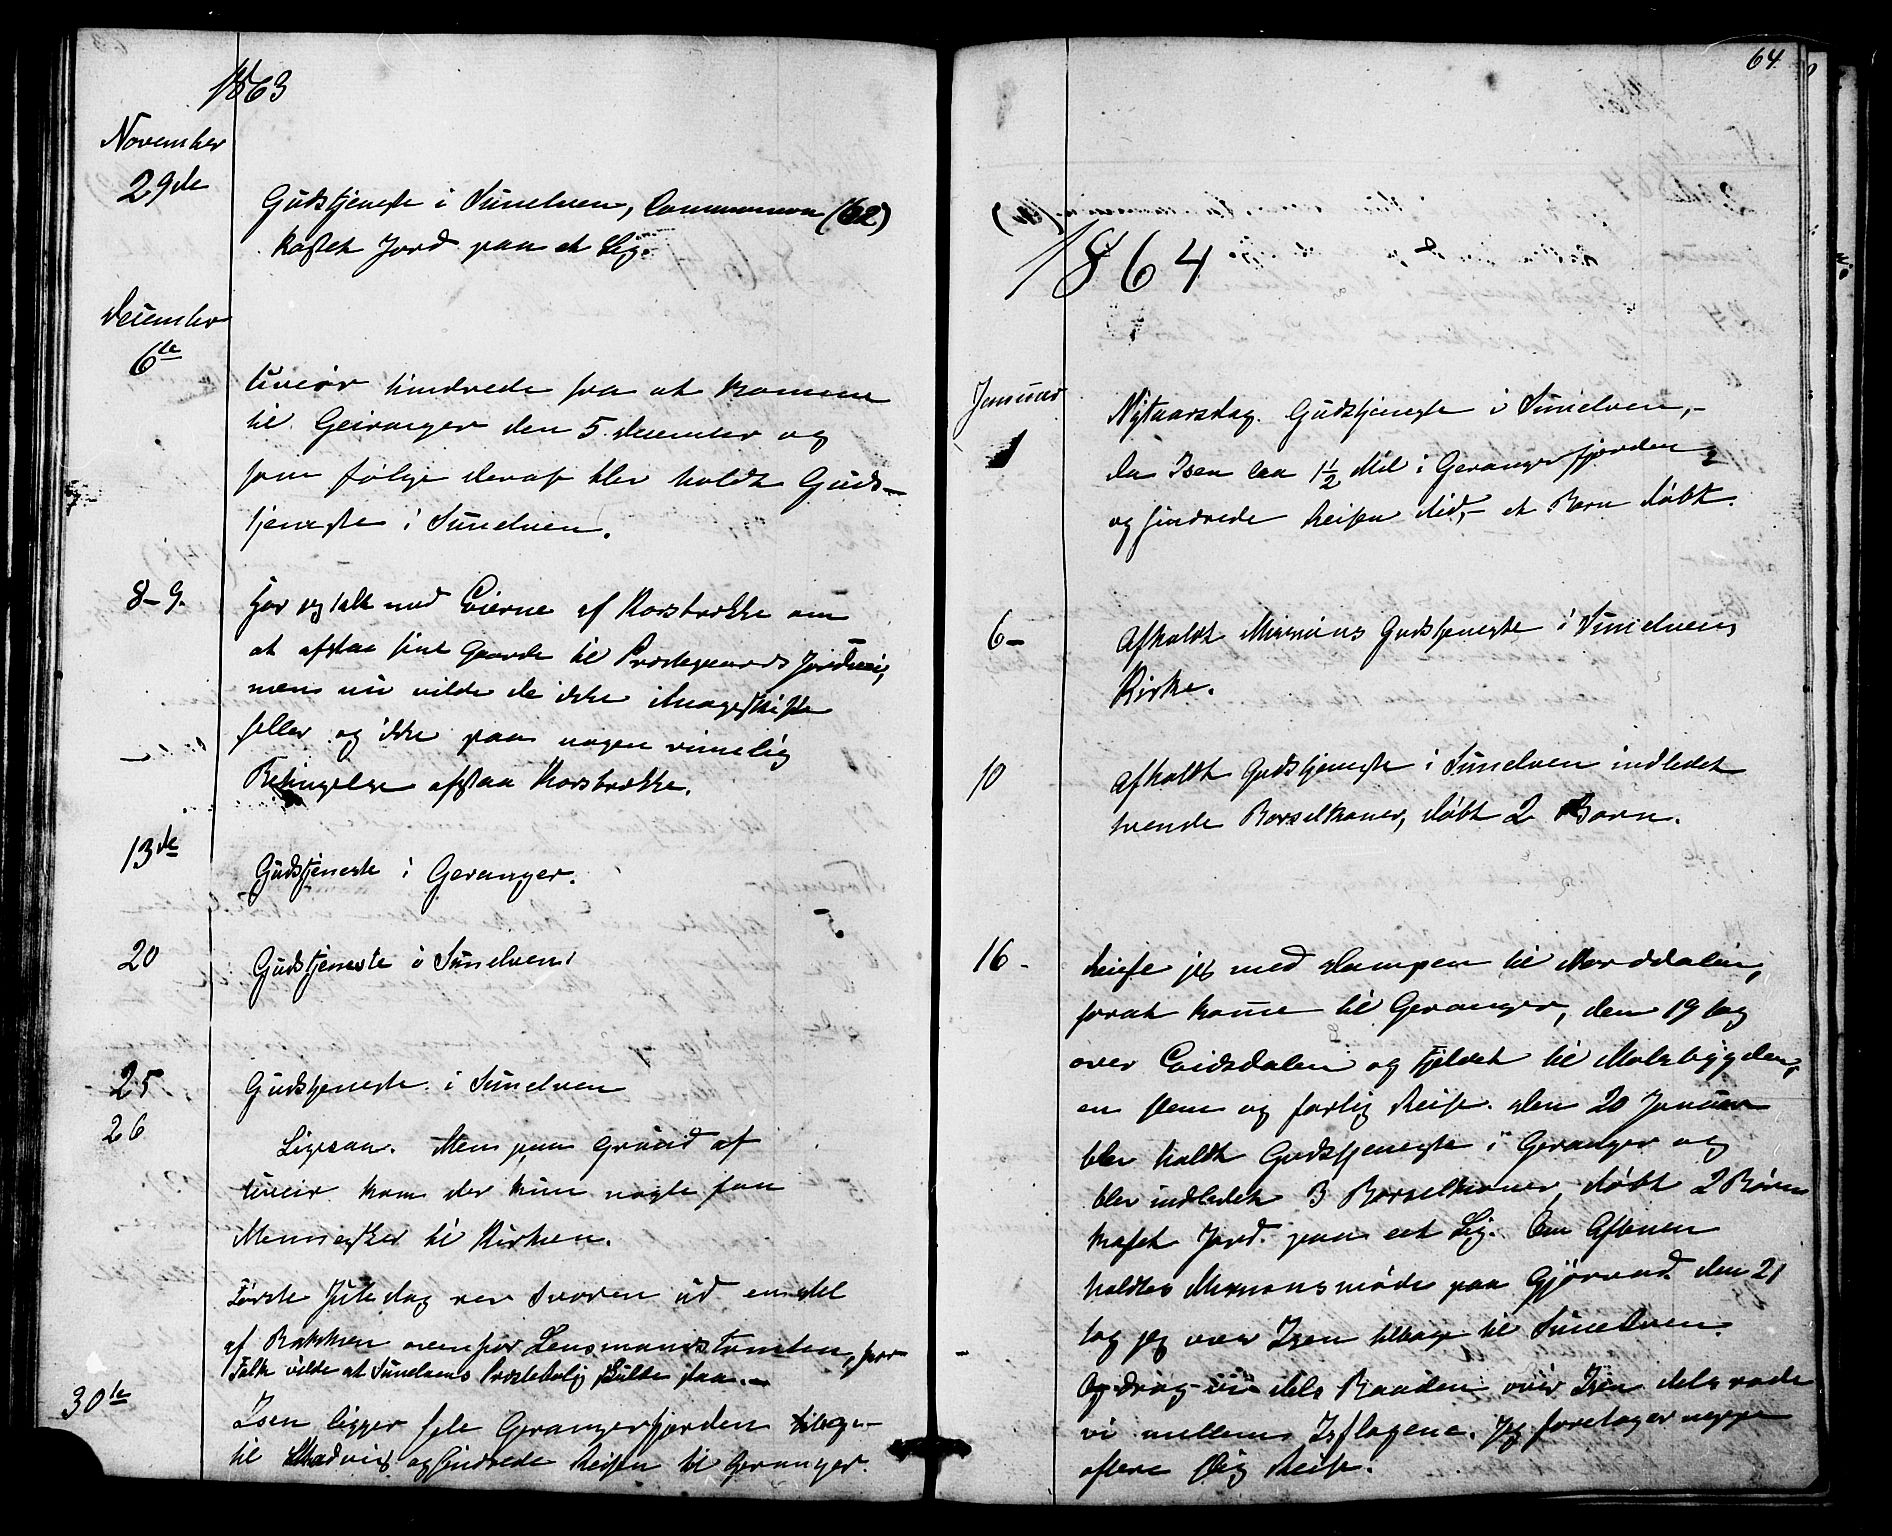 1863
November
29de
Gudstjeneste i Sunelven, Communion (62)
kastet Jord paa et Lig.
December
6te
Uveir hindrede fra at komme
til Geiranger den 5 december og
som følge deraf blev holdt Guds-
tjeneste i Sunelven.
8-9.
har jeg talt med Eierne af Korsbrække om
at afstaa sine Gaarde til Præstegaards Jordvei,
men nu vilde de ikke i Mageskifte
heller og ikke paa nogen rimelig
Betingelse afstaa Korsbrække.
13de
Gudstjeneste i Geranger.
20
Gudstjeneste i Sunelven
25
Gudstjeneste i Sunelven
26
Ligesaa. Men paa Grund af
Uveir kom der kun nogle faa
Mennesker til Kirken.
Første Juledag rev Svoren ud en del
af Bakken ovenfor Lensmandstomten, hvor
Folk vilde at Sunelvens Præstebolig skulde staa.-
30te
Isen ligger hele Gerangerfjorden
til Madvig og hindrede Reisen til Geranger.
64
1864
Januar
1
Nytaarsdag. Gudstjeneste i Sunelven,-
da Isen laa 1½ Mil i Gerangerfjorden
og hindrede Reisen did,- et Barn døbt.
6-
Afholdt Missions Gudstjeneste i Sunelvens
Kirke.
10
Afholdt Gudstjeneste i Sunelven indledet
tvende Barselkoner, døbt 2 Børn.
16-
Reiste jeg med Dampen til Norddalen,
forat komme til Geranger, den 19 tog
over Eidsdalen og Fjeldet til Molsbygden,
en slem og farlig Reise. Den 20 Januar
blev holdt Gudstjeneste i Geranger og
blev indledet 3 Barselkoner, døbt 2 Børn
kastet Jord paa eet Lig. Om Aftenen
holdtes Missionsmøde paa Gjørvad. den 21
tog jeg over Isen tilbage til Sunelven.
Og drog vi dels Baaden over Isen dels rode
vi mellem Isflagene. Jeg foretager neppe
oftere slig Reise.